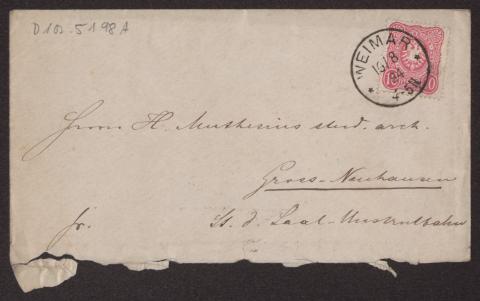 D 102-5198 A
WEIMAR
16/8
84
4-5N
10
Herrn H. Muthesius stud. arch.
Gross-Neuhausen
fr.
St. d. Saal-Unstrutbahn